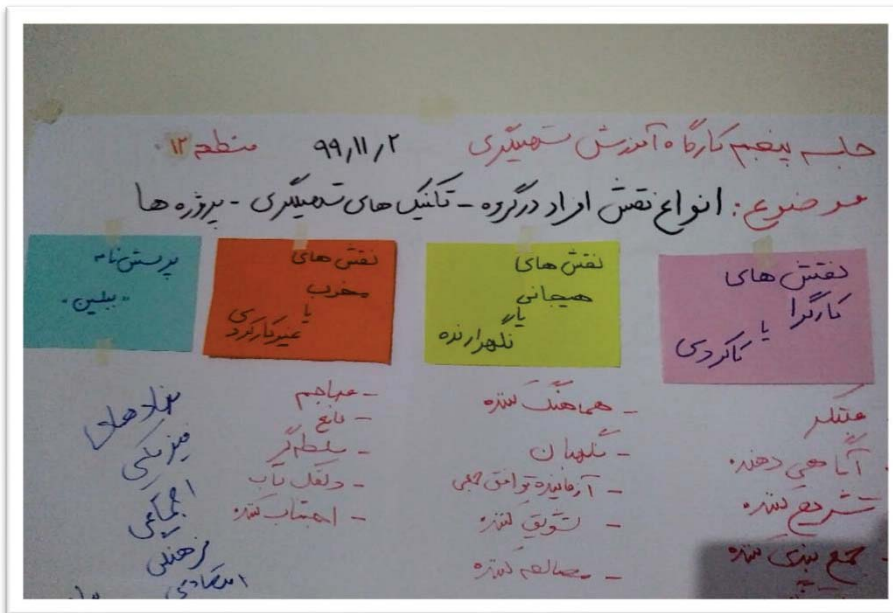 جلسه پنجم کارگاه آموزش تسهیلگری ۹۹/۱۱/۲ منطقه ۱۲
موضوع: انواع نقش افراد در گروه - تکنیک های تسهیلگری - پروژه ها
نقش های
کارگرا
یا
نقش های
هیجانی
یا
نگهدارنده
نقش های
مخرب
یا
غیرکارکردی
پرسش نامه
بلبین
مبتکر
آگاهی دهنده
تشریح کننده
- جمع بندی کننده
- هماهنگ کننده
- نگهبان
- آزماینده توافق جمعی
- تشویق کننده
- مصالحه کننده
- مهاجم
- مانع
- سلطه گر
- اجتناب کننده
نهادهای
فیزیکی
اجتماعی
فرهنگی
اقتصادی